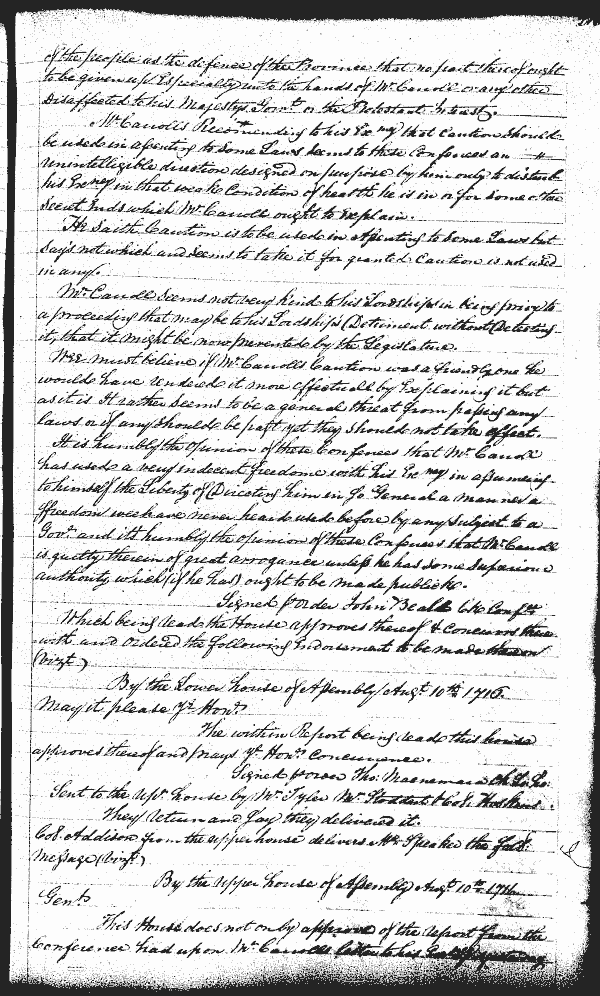 of the people as the defence of the Province that no part thereof ought
to be given up Especially unto the hands of Mr. Carroll or any other
Disaffected to his Majestys Govmt. or the Protestant Interest.
Mr. Carrolls Recommending to his Exncy that Caution should
be used in assenting to some Laws seems to these Conferees an
unintelligible direction designed on purpose by him only to disturb
his Exncy in that weake Condition of health he is in or for some other
Secret Ends which Mr. Carroll ought to Explain.
He saith Caution is to be used in assenting to some Laws but
says not which and seems to take it for granted Caution is not used
in any.
Mr. Carroll seems not very kind to his Lordships in being privy to
a proceeding that may be to his Lordships Detriment without Detecting
it, that it might be now prevented by the Legislature.
Wee must believe if Mr. Carrolls Caution was a friendly one he
would have rendered it more effectuall by Explaining it but
as it is It rather seems to be a general threat from passing any
laws or if any should be past yet they should not take effect.
It is humbly the opinion of these Conferees that Mr. Carroll
has used a very indecent freedome with his Exncy in assuming
to himself the Liberty of Directing him in so General a manner a
ffreedom wee have never heard used before by any Subject to a
Govr. and its humbly the opinion of these Conferees that Mr. Carroll
is guilty therein of great arrogance unless he has some Superiour
authority which (if he has) ought to be made publick.
Signed p Order John Beall Clk Confce
Which being read the House approves thereof & Concurrs there
with and Ordered the following Indorsement to be made thereon
(Vizt.)
By the Lower house of Assembly Augt. 10th 1716.
May it please yr. Honrs.
The within Report being read this house
approves thereof and prays yr. Honrs Concurrence.
Signed p Order Tho: Macnemara Clk Lo: Ho:
Sent to the Upr. house by Mr. Tyler Mr. Stoddert & Col.
They return and say they delivered it.
Col. Addison from the upper house delivers Mr. Speaker the foll:
Message (Vizt.)
By the Upper house of Assembly Augt. 10th 1716.
Gent.
This House does not only approve of the report from the
Conference had upon Mr. Carrolls letter to his